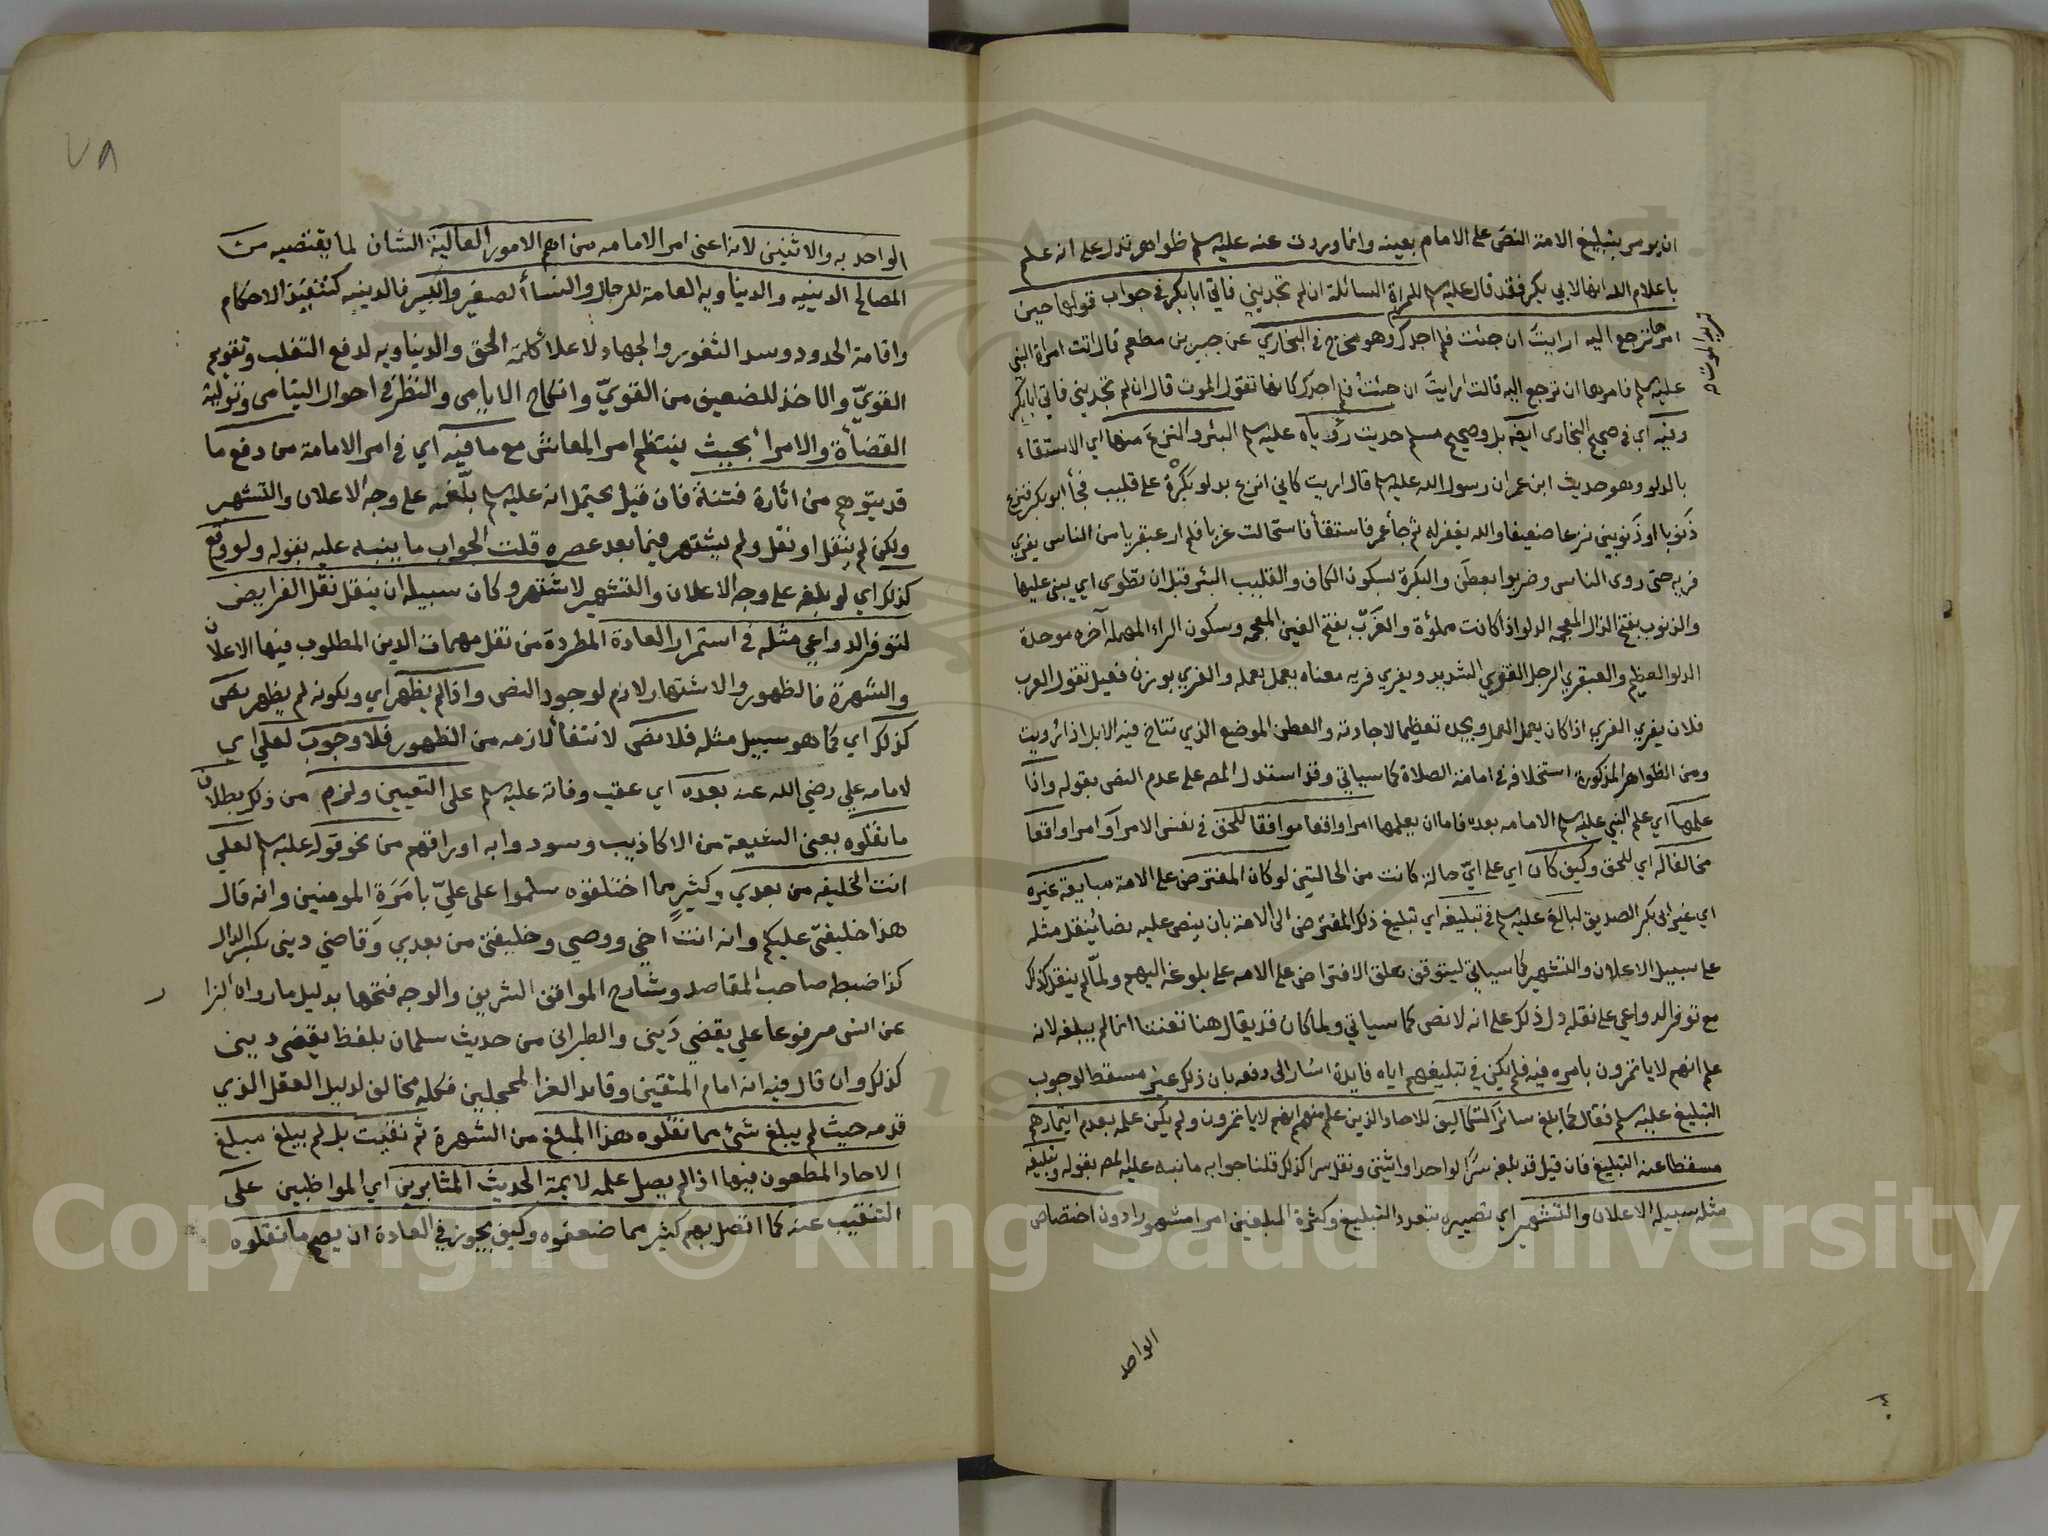 ان يومر بتبليغ الامة النص على الامام بعينه وانما وردت عنه عليه سلم ظواهر تدل على انه علم
باعلام الله انها لابي بكر فقد قال عليه سلم للمراة السائلة ان لم تجديني فاتي ابا بكر في جواب قولها حين
امرها ترجع اليه ارايت ان جئت فلم اجدك وهو مخرج في البخاري عن جبير بن مطعم قال اتت امراة النبي
تريد الموت
عليه سلم فامرها ان ترجع اليه قالت ارايت ان جئت فلم اجدك كانها تقول الموت قال ان لم تجديني فاتي ابا بكر
وفيه اي في صحيح البخاري ايضا بل وصحيح مسلم حديث رؤياه عليه سلم البئر والنزع منها اي الاستقاء
بالدلو وهو حديث ابن عمر ان رسول الله عليه سلم قال اريت كاني انزع بدلو بكرة على قليب فجأ ابو بكر فنزع
ذنوبا او ذنوبين نزعا ضعيفا والله يغفر له ثم جأ عمر فاستقأ فاستحالت غربا فلم ار عبقريا من الناس يفري
فريه حتى روى الناس وضربوا بعطن والبكرة بسكون الكاف والقليب البئر قبل ان تطوى اي يبنى عليها
والذنوب بفتح الذال المعجمه الدلو اذا كانت مملؤة والغرب بفتح الغين المعجمه وسكون الراء المهمله آخره موحدة
الدلو العظيم والعبقري الرجل القوي الشديد ويفري فريه معناه يعمل بعمله والفري بوزن فعيل تقول العرب
فلان يفري الفري اذا كان يعمل العمل ويجيده تعظيما لاجادته والعطن الموضع الذي تناخ فيه الابل اذا رويت
ومن الظواهر المذكورة استخلافه في امامة الصلاة كما سياتي وقد استدل المص على عدم النص بقوله واذا
علمها اي علم النبي عليه سلم الامامه بعده فاما ان يعلمها امرا واقعا موافقا للحق في نفس الامر او امرا واقعا
مخالفا له اي للحق وكيف كان اي على اي حالة كانت من الحالتين لو كان المفترض على الامة مبايعة غيره
اي غير ابي بكر الصديق لبالغ عليه سلم في تبليغه اي تبليغ ذلك المفترض الى الامة بان ينص عليه نصا ينقل مثله
على سبيل الاعلان والتشهير كما سياتي ليتوقف تعلق الافتراض على الامه على بلوغه اليهم ولما لم ينقل كذلك
مع توفر الدواعي على نقله دل ذلك على انه لا نص كما سياتي ولما كان قد يقال هنا تعنتا انما لم يبلغه لانه
علم انهم لا ياتمرون بامره فيه فلم يكن في تبليغهم اياه فايدة اشار الى دفعه بان ذلك غير مسقط لوجوب
التبليغ عليه سلم فقال كما بلغ سائر التكاليف للاحاد الذين علم منهم انهم لا ياتمرون ولم يكن علمه بعدم ايتمارهم
مسقطا عنه التبليغ فان قيل قد بلغه سرا لواحد او اثنين ونقل سرا كذلك قلنا جوابه ما نبه عليه المص بقوله وتبليغه
مثله سبيله الاعلان والتشهير اي تصييره بتعدد التبليغ وكثرة المبلغين امرا مشهورا دون اختصاص
الواحد
٧٨
الواحد به والاثنين لانه اعني امر الامامه من اهم الامور العالية الشان لما يقتضيه من
المصالح الدينيه والدنياويه العامة للرجال والنسأ الصغير والكبير فالدينيه كتنفيذ الاحكام
واقامة الحدود وسد الثغور والجهاد لاعلا كلمة الحق والدنياويه لدفع التغلب وتقويم
القوي والاخذ للضعيف من القوي وانكاح الايامى والنظر في احوال اليتامى وتولية
القضأة والامرأ بحيث ينتظم امر المعاش مع ما فيه اي في امر الامامة من دفع ما
قد يتوهم من اثارة فتنة فان قيل يحتمل انه عليه سلم بلغه على وجه الاعلان والتشهير
ولكن لم ينقل او نقل ولم يشتهر فيما بعد عصره قلت الجواب ما ينبه عليه بقوله ولو وقع
كذلك اي لو بلغه على وجه الاعلان والتشهير لاشتهر وكان سبيله ان ينقل نقل الفرايض
لتوفر الدواعي مثله في استمرار العادة المطردة من نقل مهمات الدين المطلوب فيها الاعلان
والشهرة فالظهور والاشتهار لازم لوجود النص واذا لم يظهر اي ولكونه لم يظهر نص
كذلك اي كما هو سبيل مثله فلا نص لانتفأ لازمه من الظهور فلا وجوب لعلي اي
لامامه علي رضي الله عنه بعده اي عقب وفاته عليه سلم على التعيين ولزم من ذلك بطلان
ما نقلوه يعني الشيعة من الاكاذيب وسودوا به اوراقهم من نحو قوله عليه سلم لعلي
انت الخليفه من بعدي وكثير مما اختلقوه سلموا على علي بامرة المومنين وانه قال
هذا خليفتي عليكم وانه انت اخي ووصي وخليفتي من بعدي وقاضي ديني بكسر الدال
كذا ضبطه صاحب المقاصد وشارح المواقف الشريف والوجه فتحها بدليل ما رواه البزار
عن انس مرفوعا علي يقضي ديني والطبراني من حديث سلمان بلفظ يقضي ديني
كذلك وان قال فيه انه امام المتقين وقايد الغر المحجلين فكله مخالف لدليل العقل الذي
قدمه حيث لم يبلغ شئ مما نقلوه هذا المبلغ من الشهرة ثم نقيت بل لم يبلغ مبلغ
الاحاد المطعون فيها اذ لم يصل علمه لايمة الحديث المثابرين اي المواظبين على
التنقيب عنه كما اتصل بهم كثير مما ضعفوه وكيف يجوز في العادة ان يصح ما نقلوه
Copyright © King Saud University